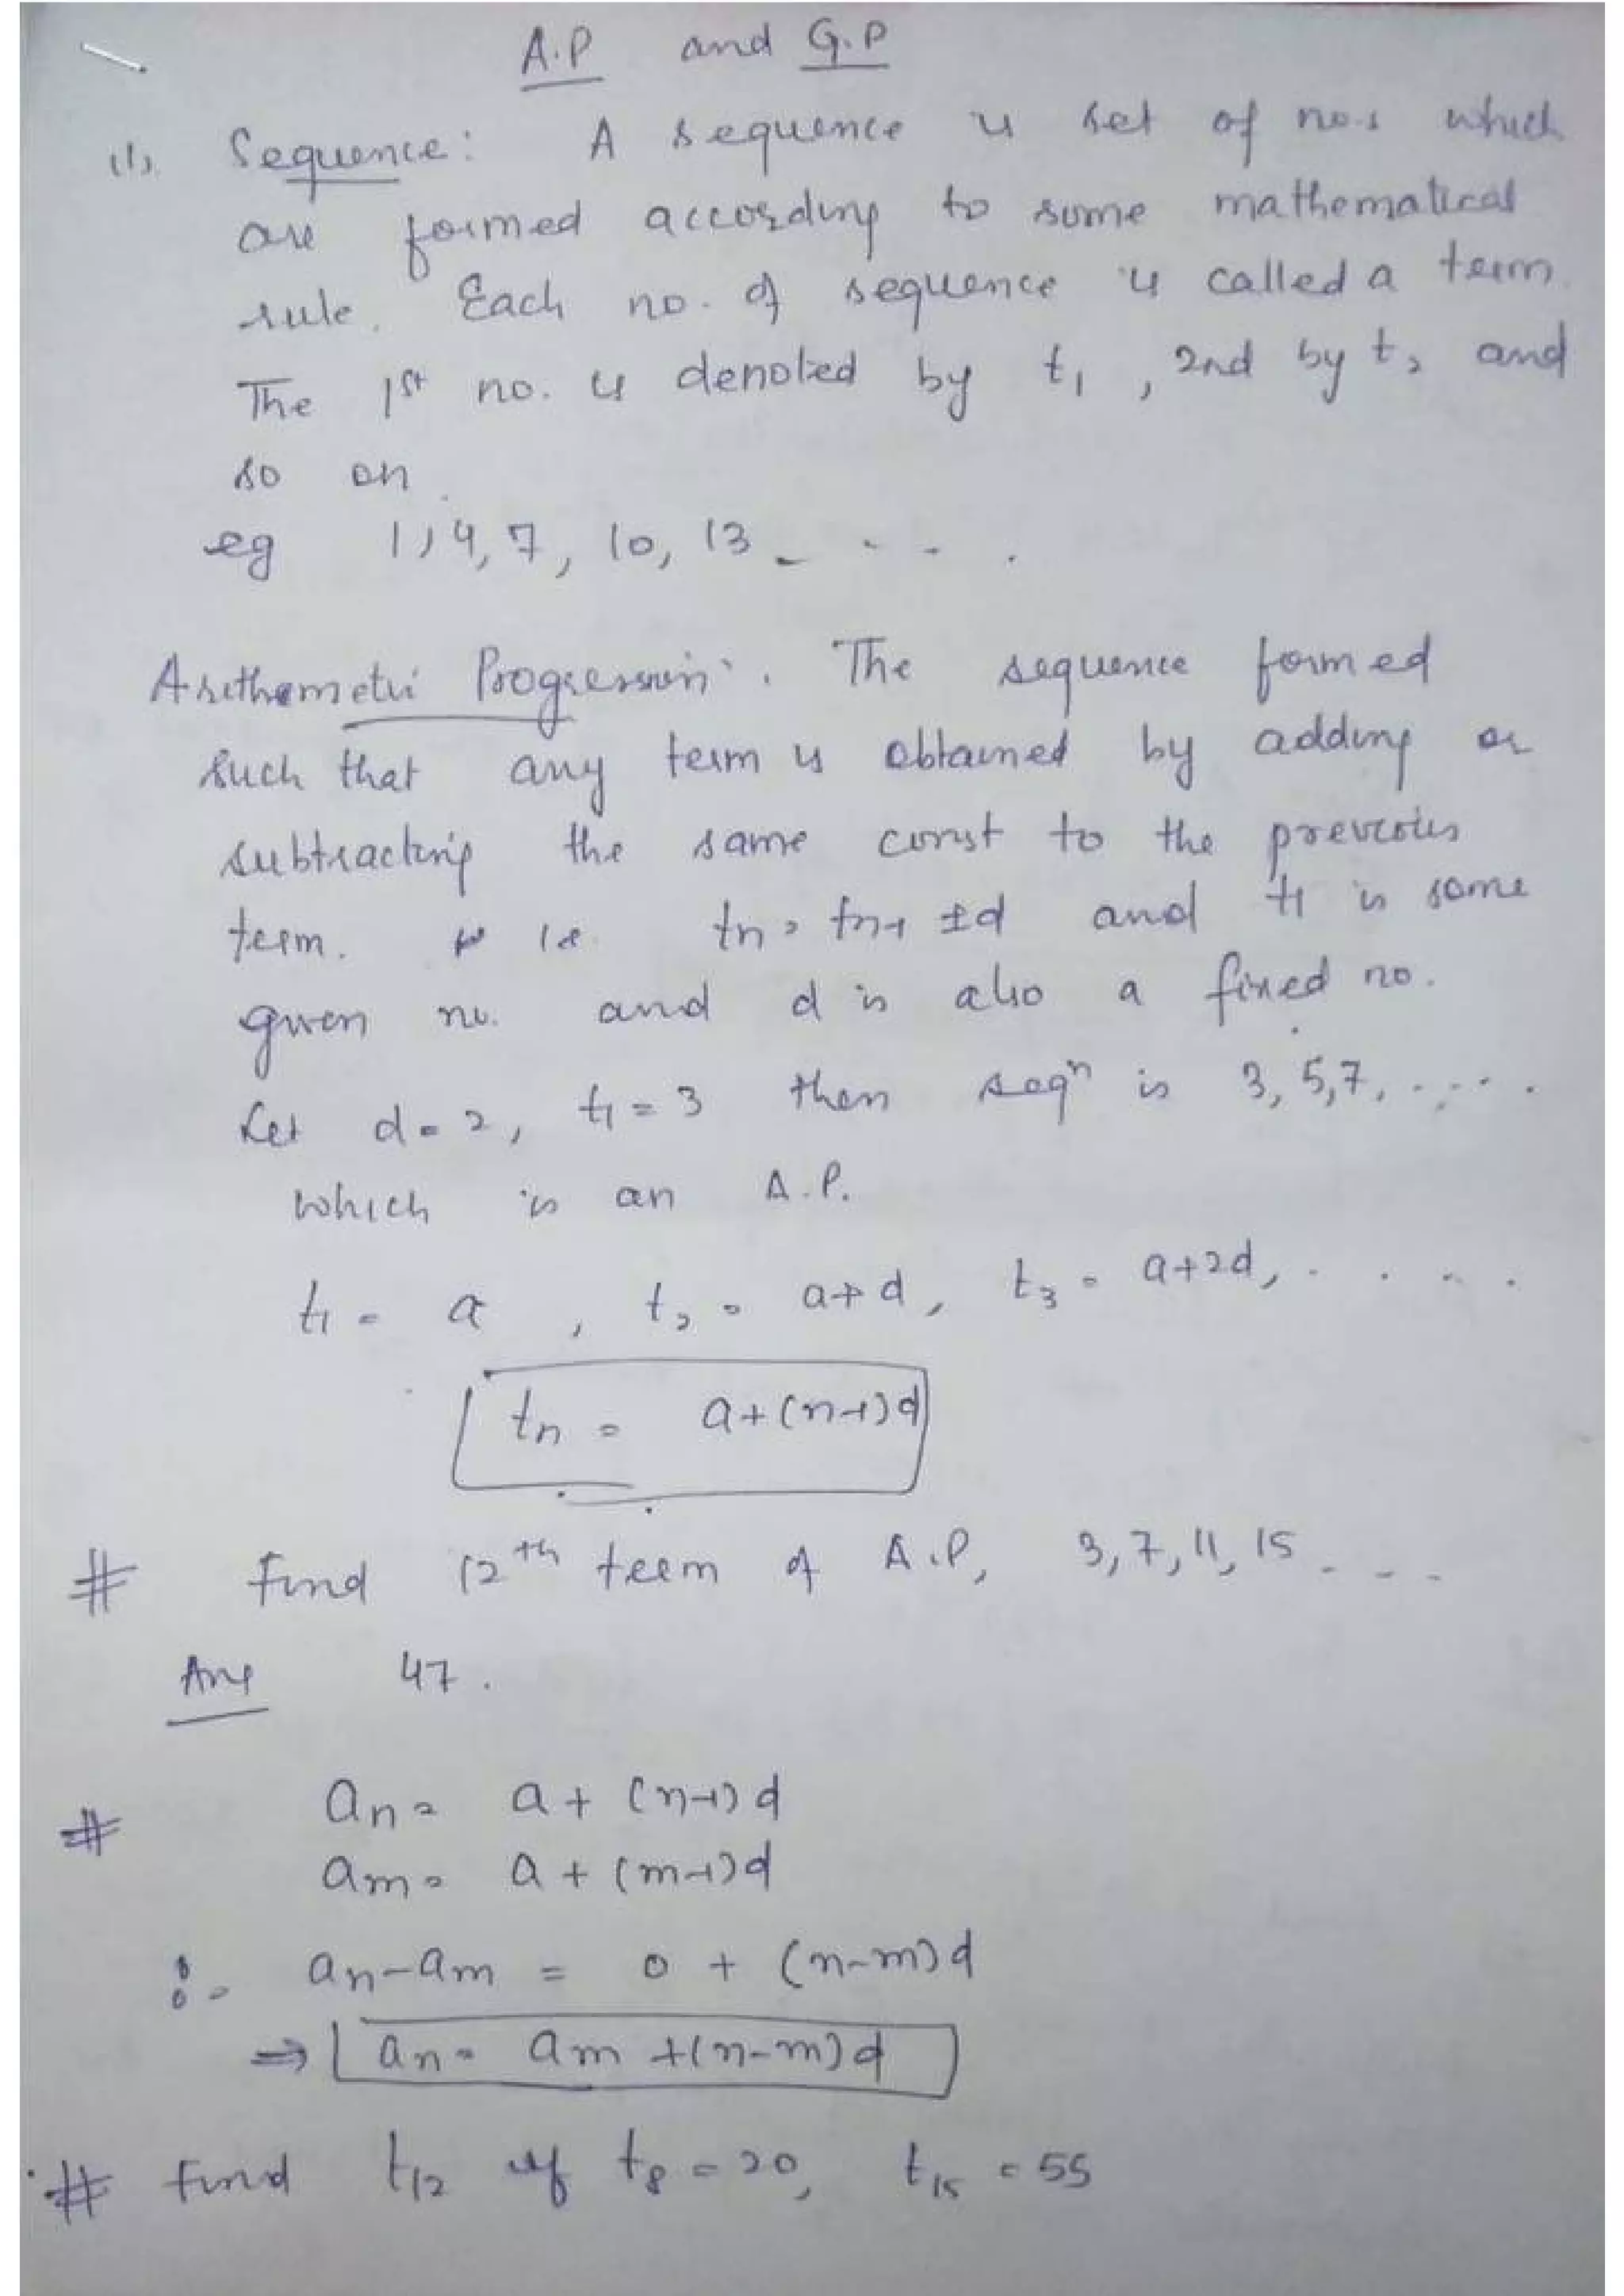 A.P and G.P
(1). Sequence: A sequence is set of no.s which
are formed according to some mathematical
rule. Each no. of sequence is called a term.
The 1st no. is denoted by t₁, 2nd by t₂ and
so on.
eg 1, 4, 7, 10, 13 - - - .
Arithemetic Progression: The sequence formed
such that any term is obtained by adding or
subtracting the same const to the previous
term. ie tn = tn-1 ±d and t1 is some
given no. and d is also a fixed no.
Let d = 2, t1 = 3 then seqⁿ is 3, 5, 7, . . . .
which is an A.P.
t1 = a , t₂ = a+d, t₃ = a+2d, . . . .
tn = a+(n-1)d
# Find 12th term of A.P, 3, 7, 11, 15 - - -
Ans 47.
# an = a + (n-1)d
am = a + (m-1)d
:- an-am = 0 + (n-m)d
⇒ an = am +(n-m)d
# Find t12 if t8 = 20, t15 = 55